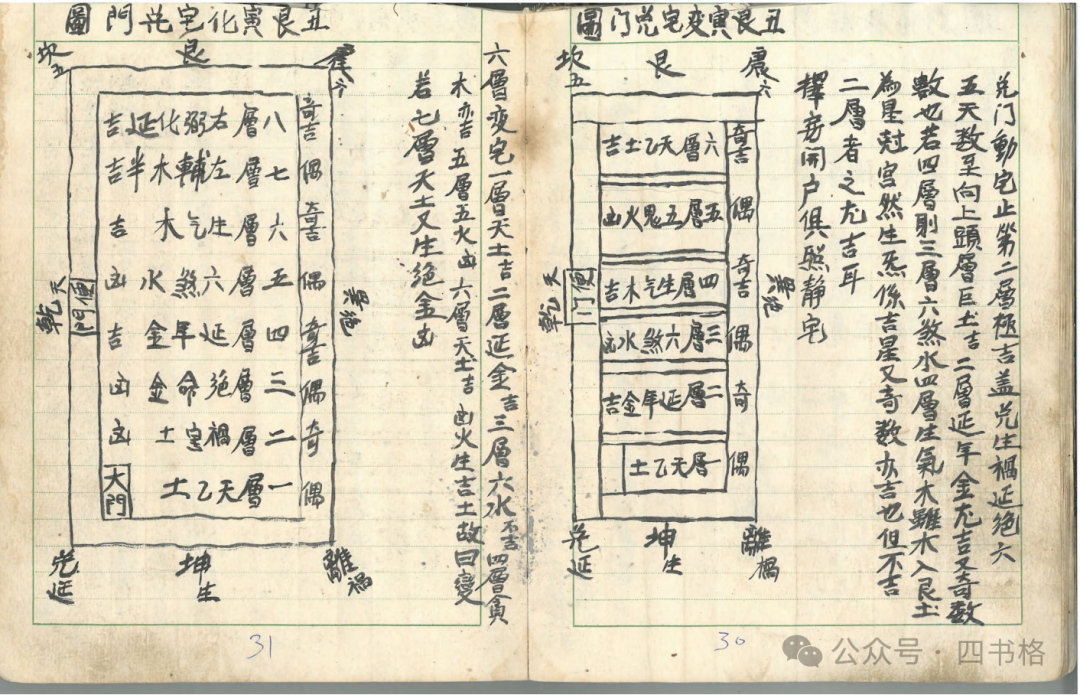 丑艮寅变宅兑门圖
兑门動宅止第二層極吉盖兑生禍延绝六
五天数至向上頭層巨土吉二層延年金尤吉又奇数
數也若四層則三層六煞水四層生氣木雖木入艮土
為星尅宮然生炁係吉星又奇数亦吉也但不吉
二層者之尤吉耳
擇旁開户俱照静宅
坎五
艮
震六
奇吉
六層天乙土吉
偶
五層五鬼火凶
奇吉
四層生气木吉
偶
三層六煞水凶
奇
二層延年金吉
偶
一層天乙土
天乾
便门
巽绝
兑延
坤生
離禍
30
六層变宅一層天土吉二層延金吉三層六水不吉四層貪
木亦吉五層五火凶六層天土吉凶火生吉土故曰變
若七層天土又生绝金凶
丑艮寅化宅兑門圖
坎五
艮
震六
奇吉
八層右弼化延吉
偶
七層左輔木半吉
奇吉
六層生气木吉
偶
五層六煞水凶
奇吉
四層延年金吉
偶
三層绝命金凶
奇
二層禍害土凶
偶
一層天乙土
大門
天乾
便門
巽绝
兑延
坤生
離禍
31
公众号·四书格